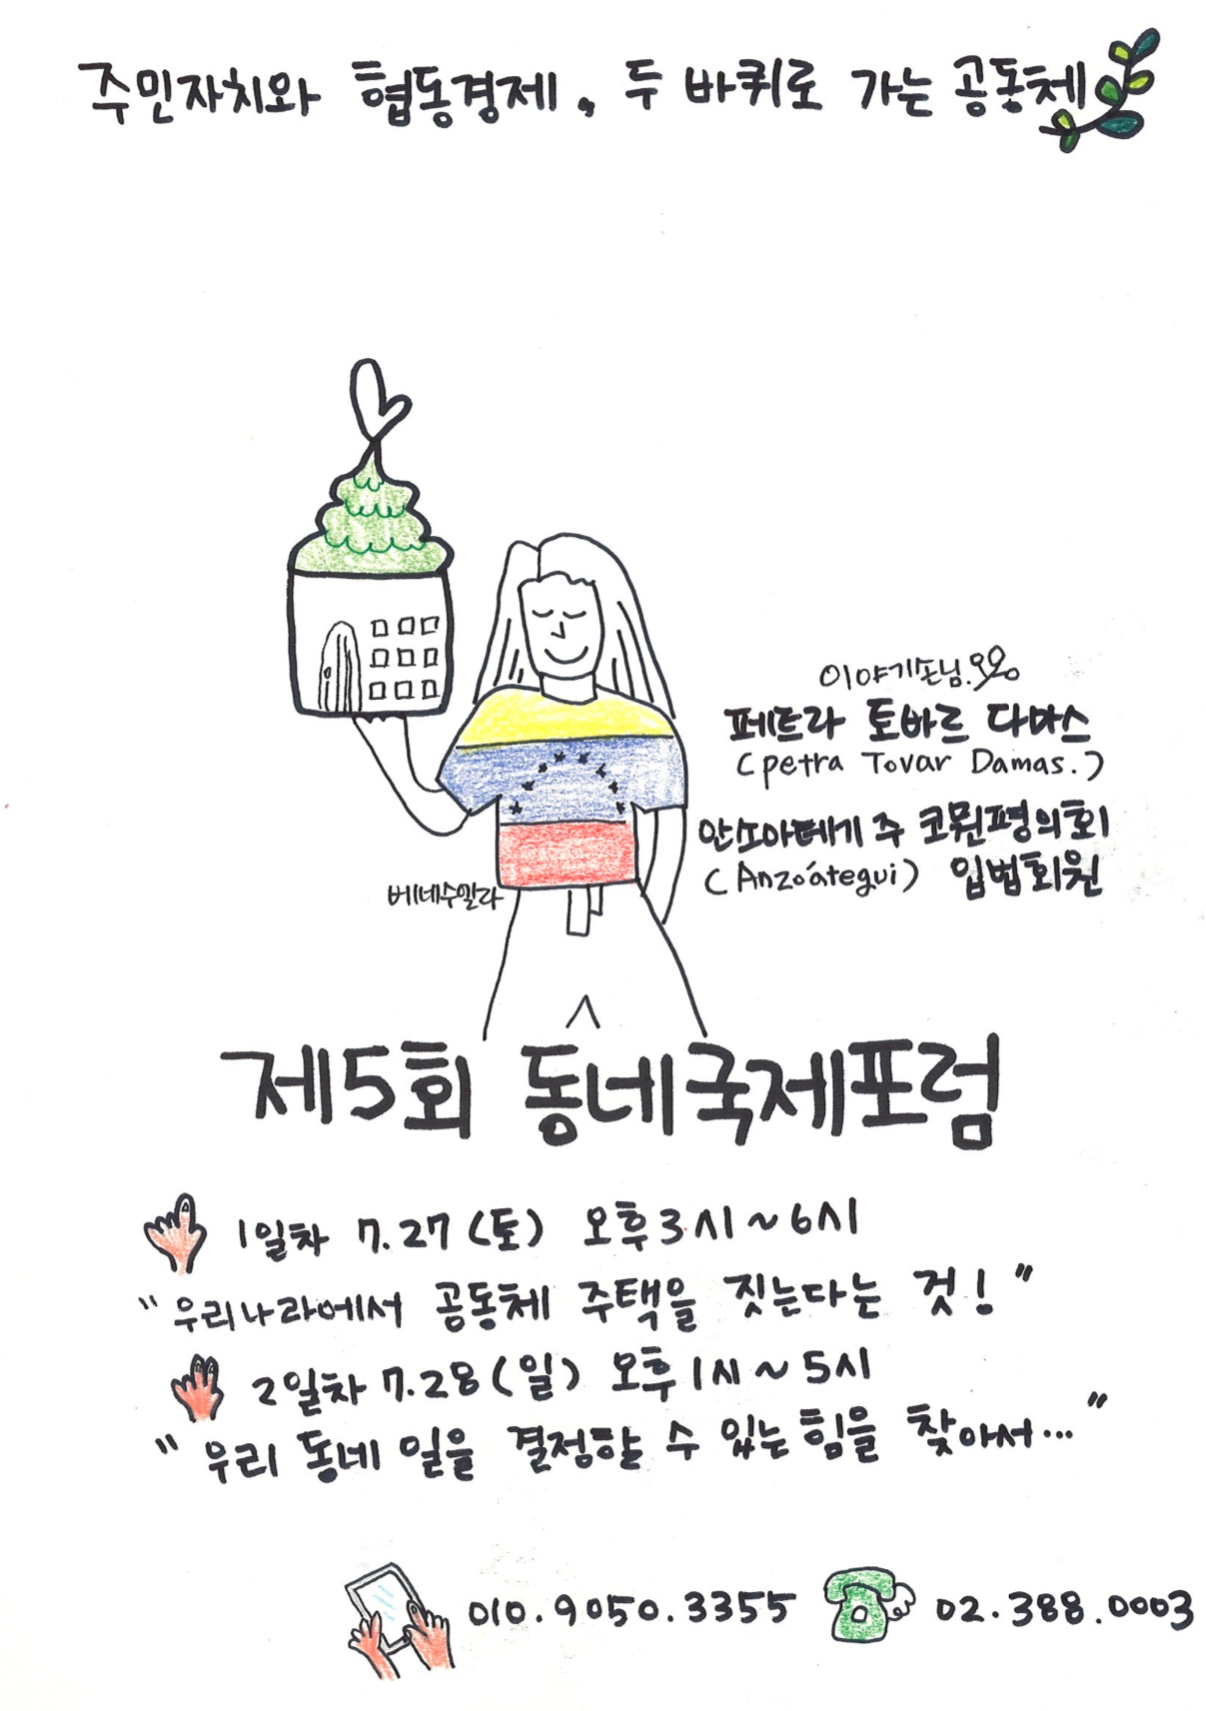 주민자치와 협동경제, 두 바퀴로 가는 공동체
이야기손님.
페트라 토바르 다마스
(petra Tovar Damas.)
안소아떼기 주 코뮌평의회
(Anzoátegui) 입법회원
베네수엘라
제5회 동네국제포럼
1일차 7.27(토) 오후3시~6시
"우리나라에서 공동체 주택을 짓는다는 것!"
2일차 7.28(일) 오후1시~5시
"우리 동네 일을 결정할 수 있는 힘을 찾아서..."
010.9050.3355 02.388.0003